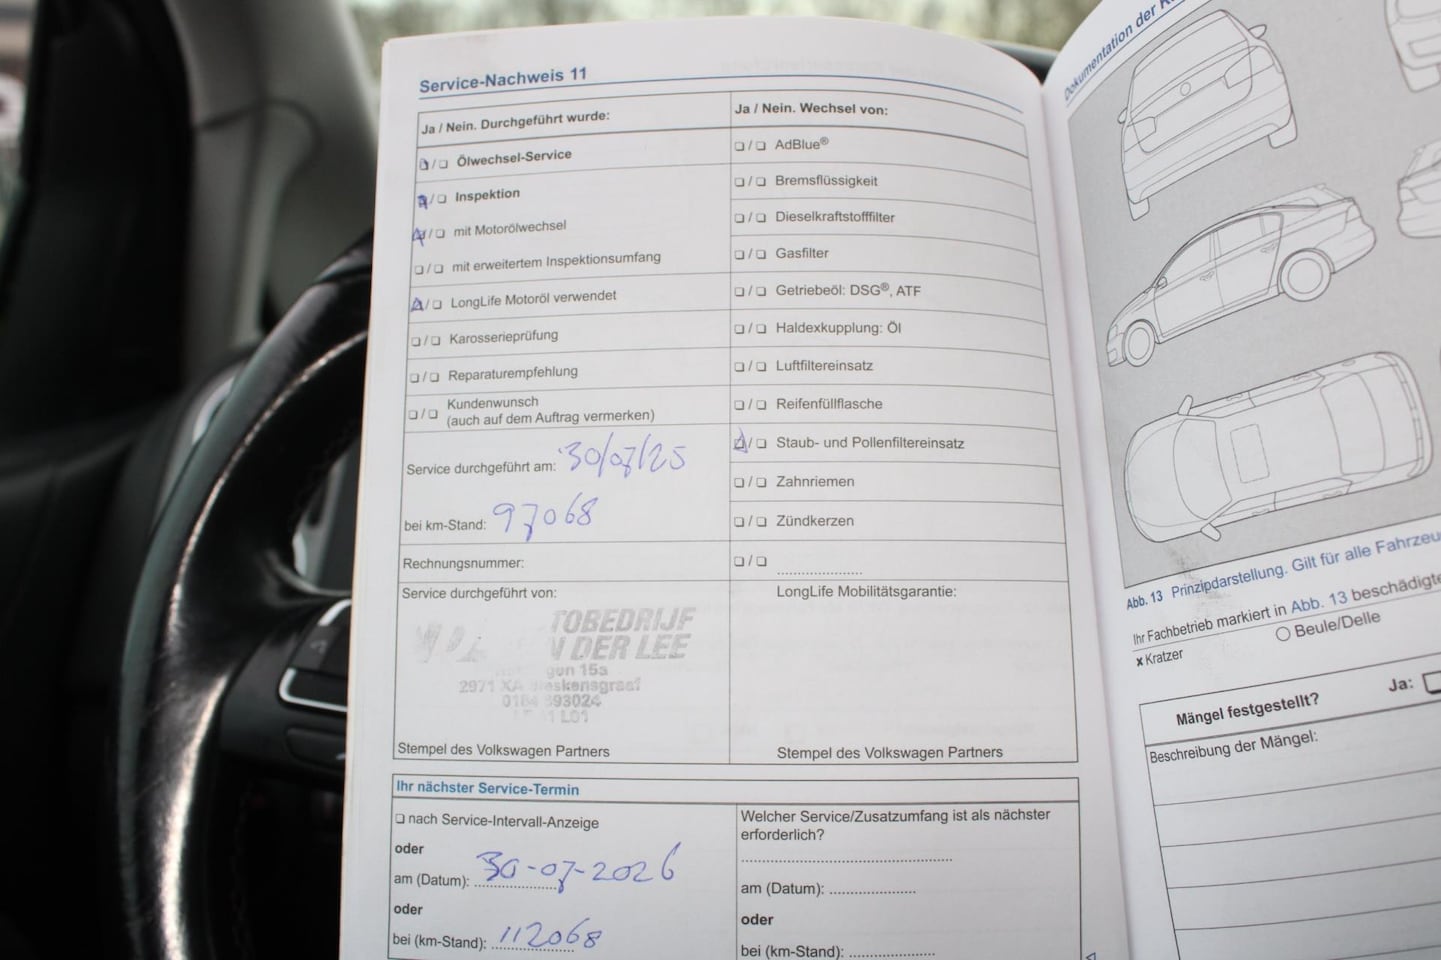 Service-Nachweis 11
Ja / Nein. Durchgeführt wurde:
❑/❑ Ölwechsel-Service
❑/❑ Inspektion
❑/❑ mit Motorölwechsel
❑/❑ mit erweitertem Inspektionsumfang
❑/❑ LongLife Motoröl verwendet
❑/❑ Karosserieprüfung
❑/❑ Reparaturempfehlung
❑/❑ Kundenwunsch
(auch auf dem Auftrag vermerken)
Service durchgeführt am: 30/07/25
bei km-Stand: 97068
Rechnungsnummer:
Service durchgeführt von:
TOBEDRIJF
DER LEE
15a
2971 XA
Stempel des Volkswagen Partners
Ja / Nein. Wechsel von:
❑/❑ AdBlue®
❑/❑ Bremsflüssigkeit
❑/❑ Dieselkraftstofffilter
❑/❑ Gasfilter
❑/❑ Getriebeöl: DSG®, ATF
❑/❑ Haldexkupplung: Öl
❑/❑ Luftfiltereinsatz
❑/❑ Reifenfüllflasche
❑/❑ Staub- und Pollenfiltereinsatz
❑/❑ Zahnriemen
❑/❑ Zündkerzen
❑/❑ .....................
LongLife Mobilitätsgarantie:
Stempel des Volkswagen Partners
Ihr nächster Service-Termin
❑ nach Service-Intervall-Anzeige
oder
am (Datum): 30-07-2026
oder
bei (km-Stand): 112068
Welcher Service/Zusatzumfang ist als nächster
erforderlich?
am (Datum): .....................
oder
bei (km-Stand): .....................
Dokumentation der
Abb. 13 Prinzipdarstellung. Gilt für alle
Ihr Fachbetrieb markiert in Abb. 13
x Kratzer
○ Beule/Delle
Mängel festgestellt?
Ja: ❑
Beschreibung der Mängel: